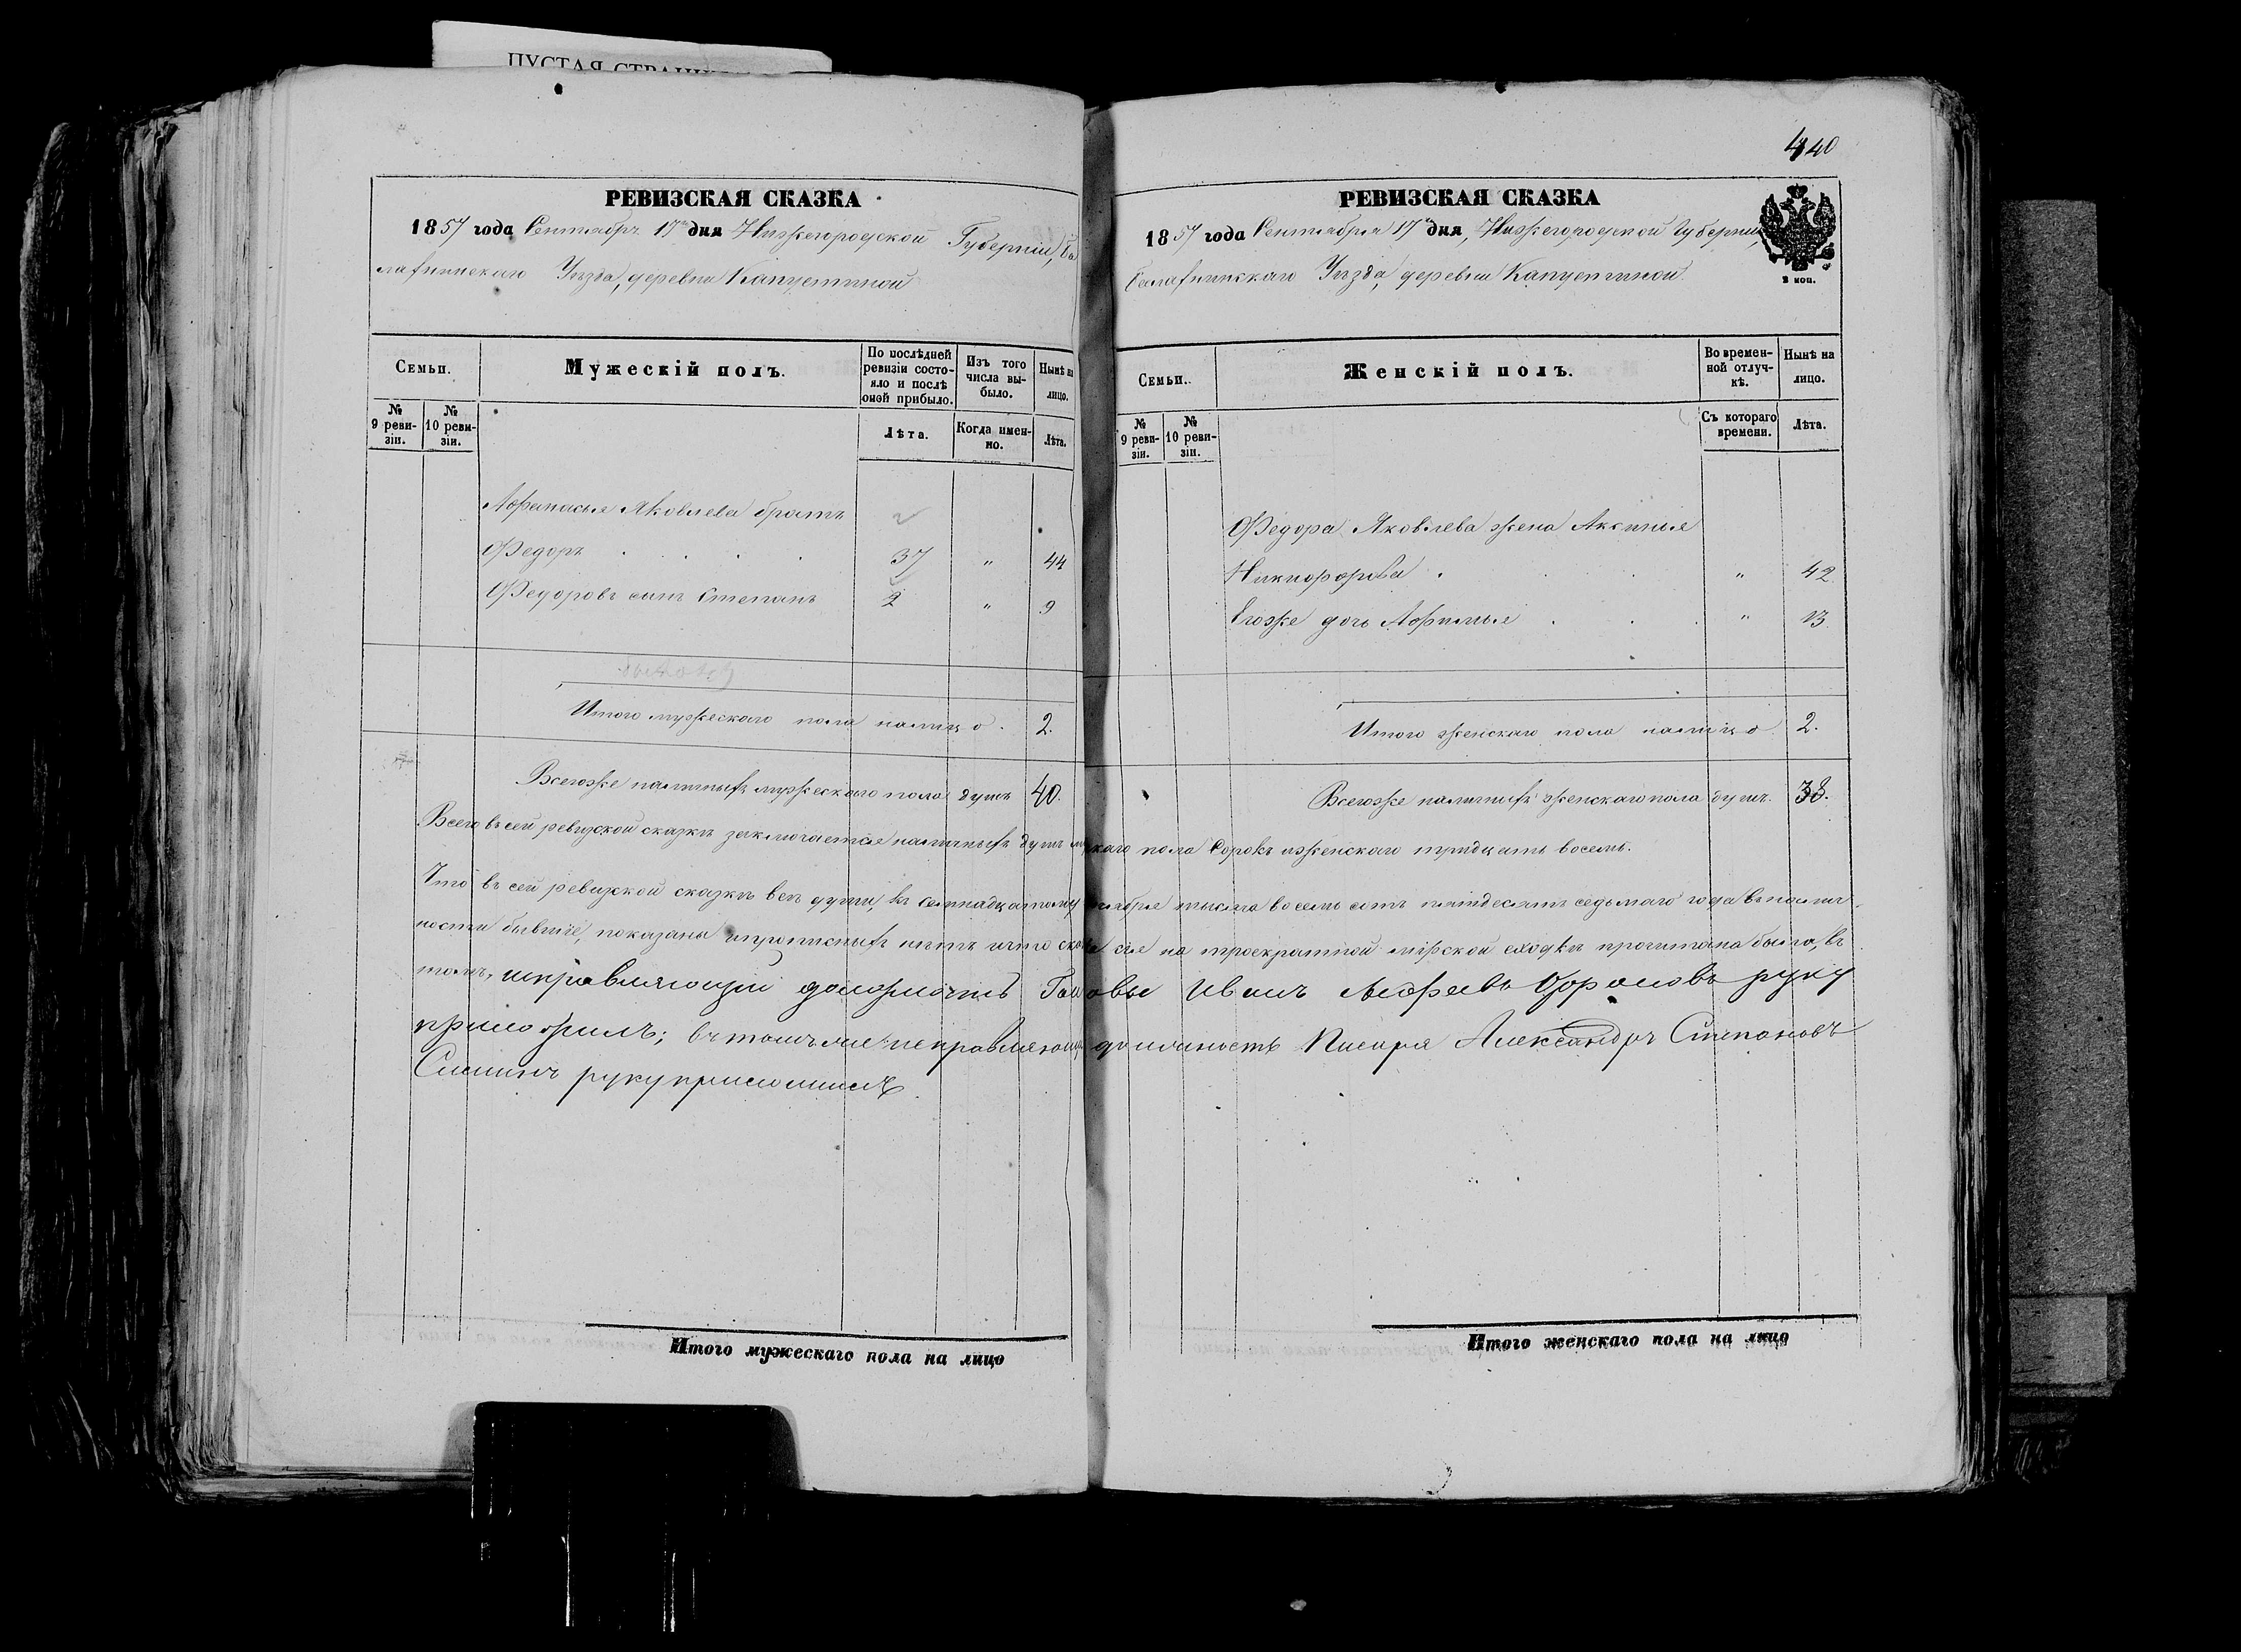 ПУСТАЯ СТРАНИЦА
РЕВИЗСКАЯ СКАЗКА
1857 года Сентября 17 дня Нижегородской Губерніи, Ба
лахнинскаго Уѣзда, деревни Капустиной
Семьи.
Мужескій полъ.
По послѣдней ревизіи состояло и послѣ оной прибыло.
Изъ того числа выбыло.
Нынѣ на лицо.
№ 9 ревизіи.
№ 10 ревизіи.
Лѣта.
Когда именно.
Лѣта.
Афанасья Яковлева братъ
Федоръ 37 " 44
Федоровъ сынъ Степанъ 2 " 9
Итого мужескаго пола налицо 2.
Всегоже наличныхъ мужескаго пола душъ 40.
440
РЕВИЗСКАЯ СКАЗКА
1857 года Сентября 17 дня, Нижегородской Губерніи,
Балахнинскаго Уѣзда, деревни Капустиной
2 коп.
Семьи.
Женскій полъ.
Во временной отлучкѣ.
Нынѣ на лицо.
№ 9 ревизіи.
№ 10 ревизіи.
Съ котораго времени.
Лѣта.
Федора Яковлева жена Аксинья
Никифорова " 42
Егоже дочь Афимья " 13
Итого женскаго пола налицо 2.
Всегоже наличныхъ женскаго пола душъ. 38.
Всего въ сей ревизской сказкѣ заключается наличныхъ душъ мужскаго пола сорокъ иженскаго тридцать восемь.
Что въ сей ревизской сказкѣ все души, къ семнадцатому сентября тысяча восемь сотъ пятдесятъ седьмаго года въ налич-
ности бывшіе, показаны ипрописныхъ нѣтъ ичто сказка сія на троекратной мірской сходкѣ прочитана была, въ
томъ, исправляющій должность Головы Иванъ руку
приложилъ; вътомъже исправляющій должность Писаря Александръ Степановъ
руку приложилъ
Итого мужескаго пола на лицо
Итого женскаго пола на лицо